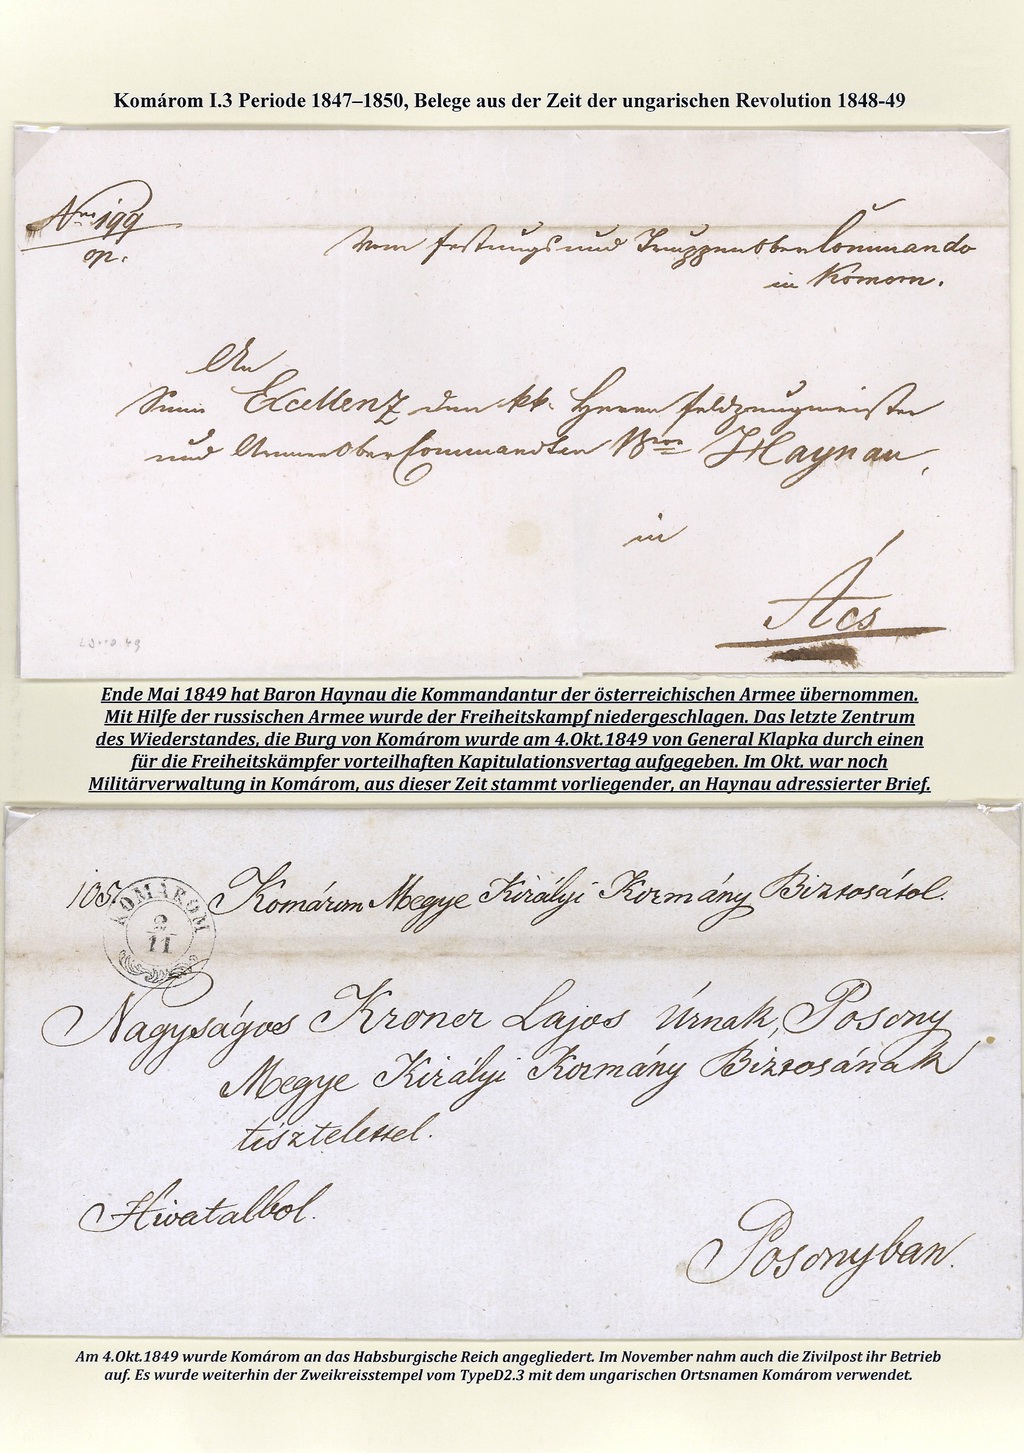 Komárom I.3 Periode 1847–1850, Belege aus der Zeit der ungarischen Revolution 1848-49
Nro 199
op.
Vom Festungs und Truppen Ober Commando
in Komorn.
An
Seine Excellenz den kk. Herrn Feldzeugmeister
und Armee Ober Commandten Bron Haynau,
in
Ács
Ende Mai 1849 hat Baron Haynau die Kommandantur der österreichischen Armee übernommen.
Mit Hilfe der russischen Armee wurde der Freiheitskampf niedergeschlagen. Das letzte Zentrum
des Wiederstandes, die Burg von Komárom wurde am 4.Okt.1849 von General Klapka durch einen
für die Freiheitskämpfer vorteilhaften Kapitulationsvertag aufgegeben. Im Okt. war noch
Militärverwaltung in Komárom, aus dieser Zeit stammt vorliegender, an Haynau adressierter Brief.
105. Komárom Megye Királyi Kormány Biztosátol.
KOMÁROM
2/11
Nagyságos Kroner Lajos Úrnak, Posony
Megye Királyi Kormány Biztosának
tisztelettel.
Hivatalbol.
Posonyban.
Am 4.Okt.1849 wurde Komárom an das Habsburgische Reich angegliedert. Im November nahm auch die Zivilpost ihr Betrieb
auf. Es wurde weiterhin der Zweikreisstempel vom TypeD2.3 mit dem ungarischen Ortsnamen Komárom verwendet.